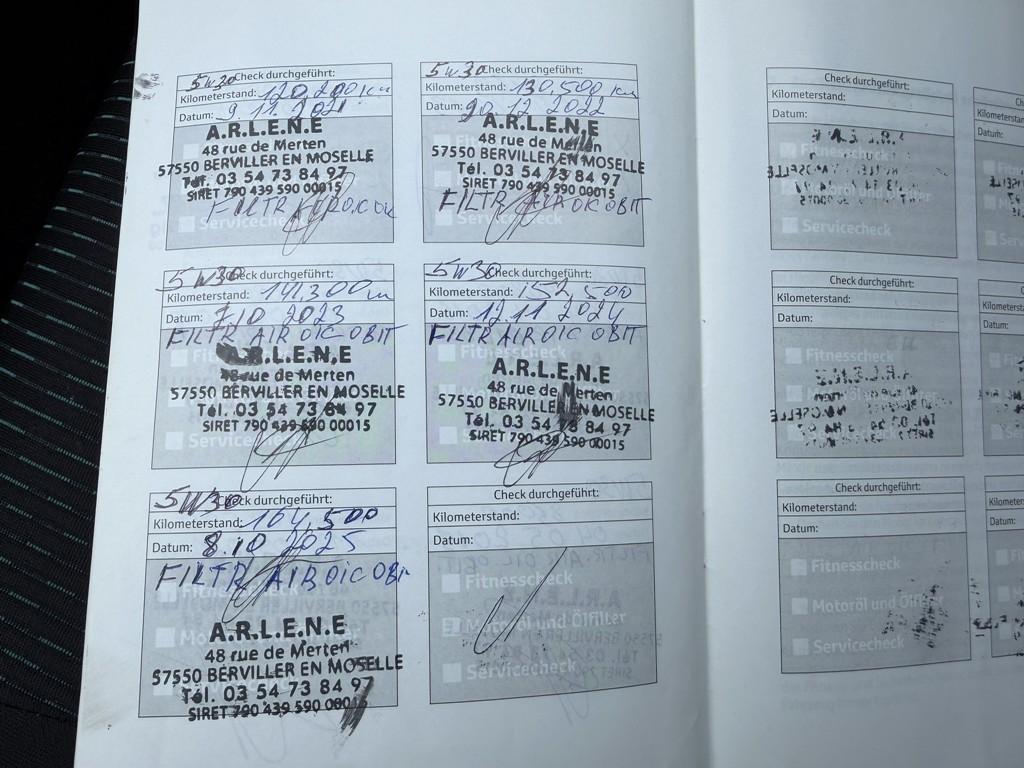 5W30
Check durchgeführt:
Kilometerstand: 120,200 km
Datum: 9.11.2021
A.R.L.E.N.E
48 rue de Merten
57550 BERVILLER EN MOSELLE
Tél. 03 54 73 84 97
SIRET 790 439 590 00015
FILTR AIR OIC
Servicecheck
5W30
Check durchgeführt:
Kilometerstand: 130,500 km
Datum: 12 2022
A.R.L.E.N,E
48 rue de Merten
57550 BERVILLER EN MOSELLE
Tél. 03 54 73 84 97
SIRET 790 439 590 00015
FILTR AIR OIC OBIT
Servicecheck
5W30
Check durchgeführt:
Kilometerstand: 141,300
Datum: 7.10 2023
FILTR AIR OIC OBIT
A.R.L.E.N,E
48 rue de Merten
57550 BERVILLER EN MOSELLE
Tél. 03 54 73 84 97
SIRET 790 439 590 00015
5W30
Check durchgeführt:
Kilometerstand: 152,500
Datum: 12.11 2024
FILTR AIR OIC OBIT
A.R.L.E.N.E
48 rue de Merten
57550 BERVILLER EN MOSELLE
Tél. 03 54 73 84 97
SIRET 790 439 590 00015
5W30
Check durchgeführt:
Kilometerstand: 164,500
Datum: 8.10 2025
FILTR AIR OIC OBIT
A.R.L.E.N.E
48 rue de Merten
57550 BERVILLER EN MOSELLE
Tél. 03 54 73 84 97
SIRET 790 439 590 00015
Check durchgeführt:
Kilometerstand:
Datum:
Fitnesscheck
Motoröl und Ölfilter
Servicecheck
Check durchgeführt:
Kilometerstand:
Datum:
Fitnesscheck
Servicecheck
Check durchgeführt:
Kilometerstand:
Datum:
Fitnesscheck
Check durchgeführt:
Kilometerstand:
Datum:
Fitnesscheck
Motoröl und Ölfilter
Servicecheck
Datum:
Datum:
Datum: